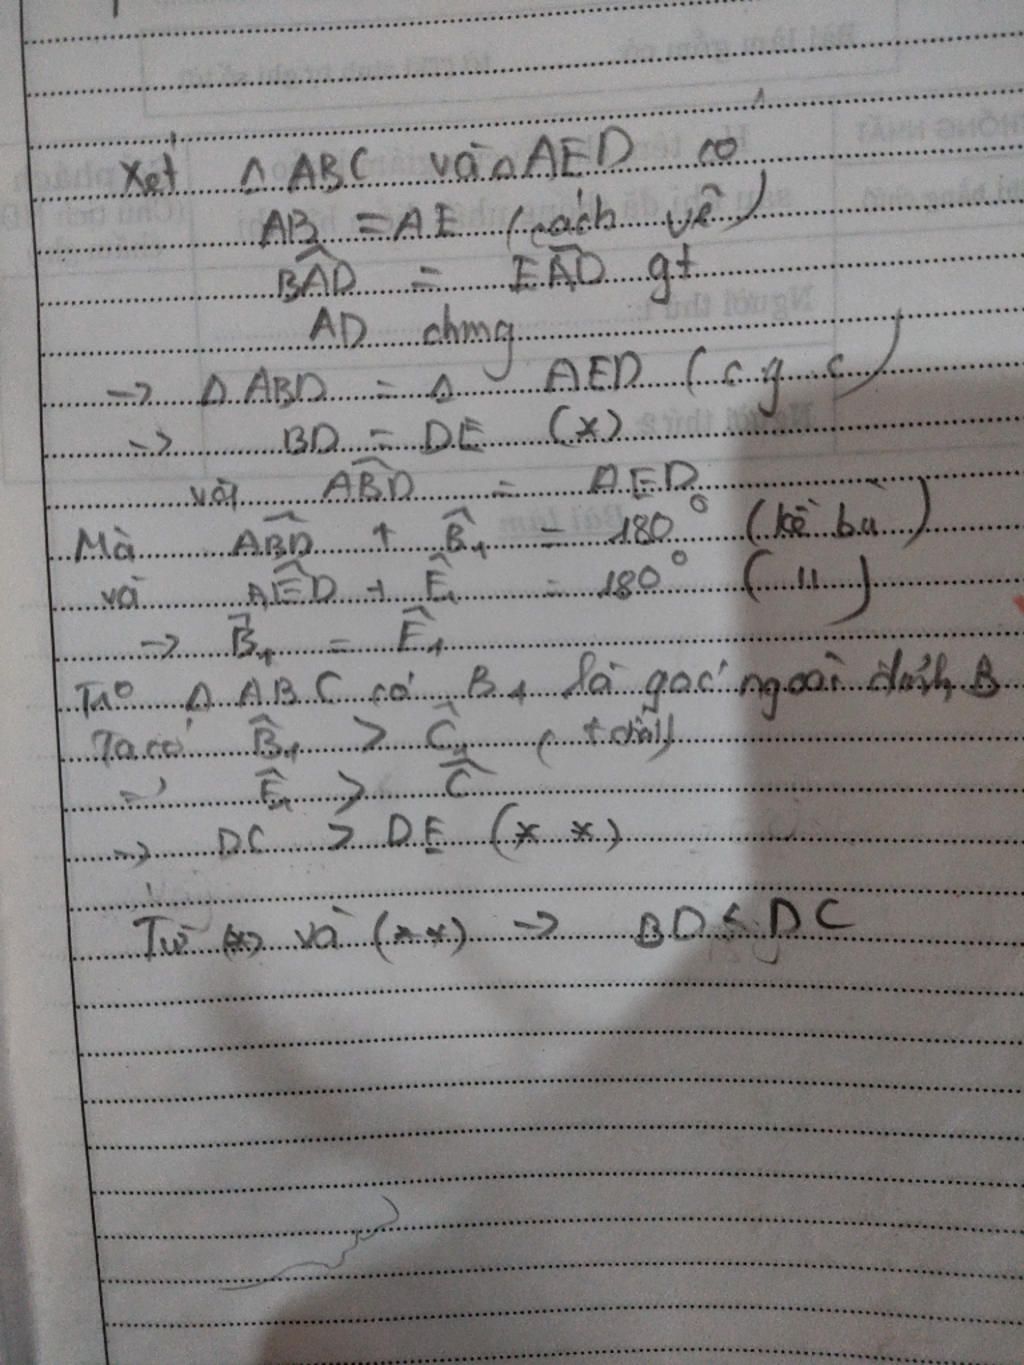 Xét Δ ABC và Δ AED có
AB = AE (cách vẽ)
BAD = EAD gt
AD chung
→ Δ ABD = Δ AED (c.g.c)
→ BD = DE (*)
với ABD = AED
Mà ABD + B̂1 = 180° (kề bù)
và AED + Ê1 = 180° ( 11 )
→ B̂1 = Ê1
Δ ABC có B1 là góc ngoài đỉnh B
Ta có B̂1 > Ĉ
Ê1 > Ĉ
→ DC > DE (* *)
Từ (*) và (**) → BD < DC